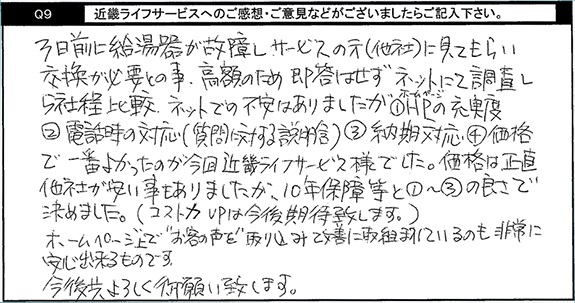 Q9 近畿ライフサービスへのご感想・ご意見などがございましたらご記入下さい。
3日前に給湯器が故障しサービスの方(他社)に見てもらい
交換が必要との事、高額のため即答はせずネットにて調査し
5社程比較、ネットでの不安はありましたが①HPの充実度
②電話時の対応(質問に対する説明含)③納期対応④価格
で一番よかったのが今回近畿ライフサービス様でした。価格は正直
他社が安い事もありましたが、10年保障等と①〜③の良さで
決めました。(コスト力UPは今後期待致します。)
ホームページ上で"お客の声を"取り込みで改善に取組まれているのも非常に
安心出来るものです
今後共よろしく御願い致します。